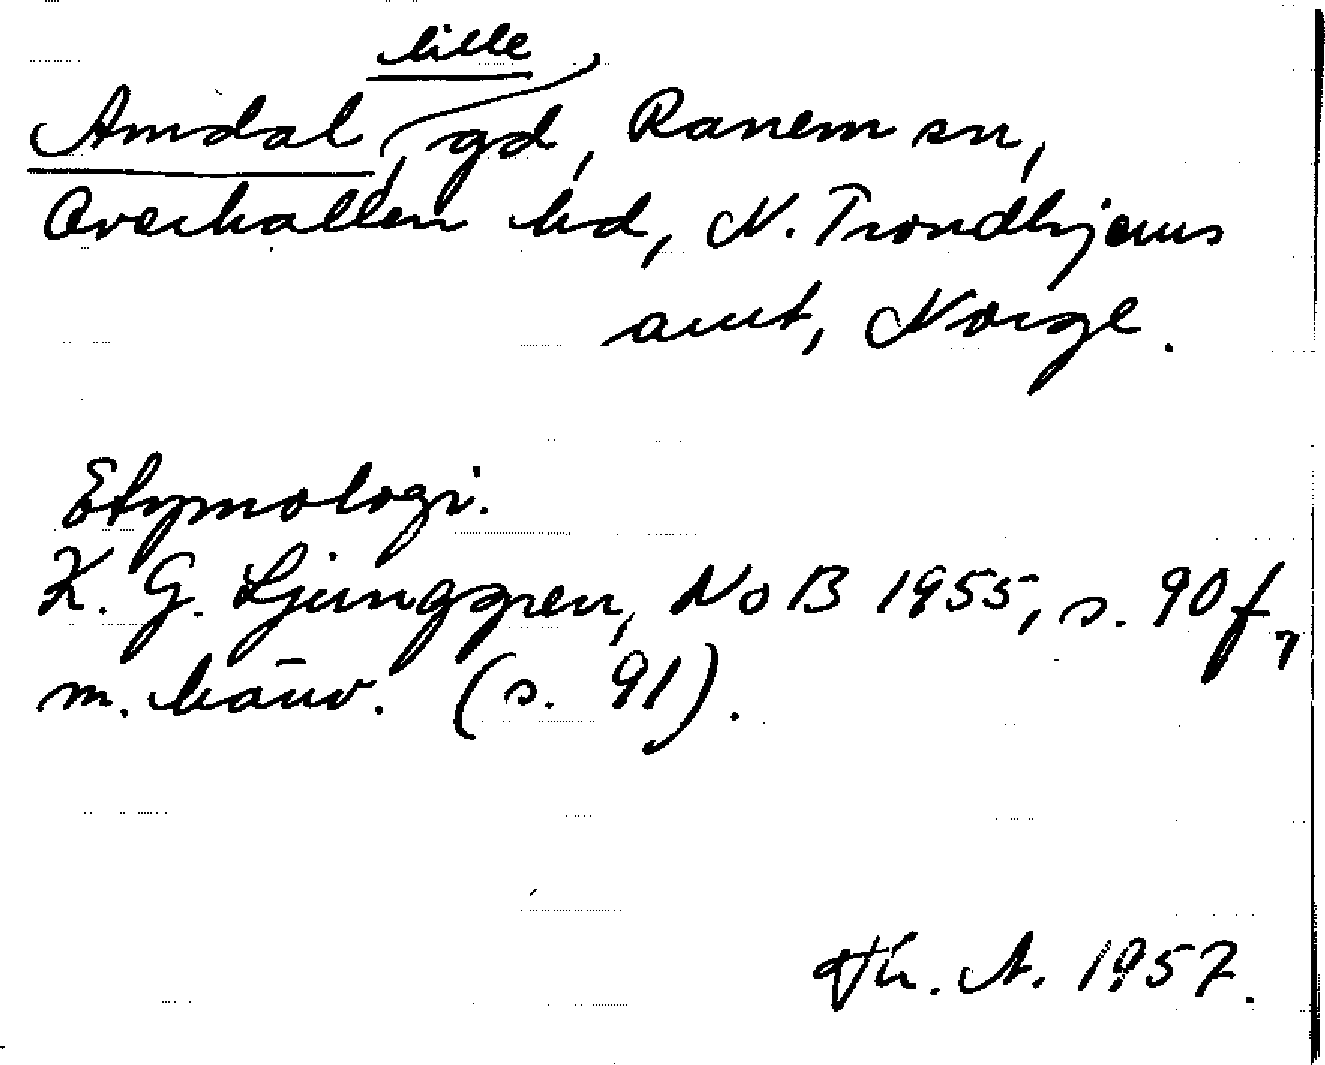 lille
Amdal, gd, Ranem sn,
Overhallen hd, N. Trondhjems
amt, Norge.
Etymologi.
K. G. Ljunggren, NoB 1955, s. 90 f,
m. hänv. (s. 91).
Th. A. 1957.